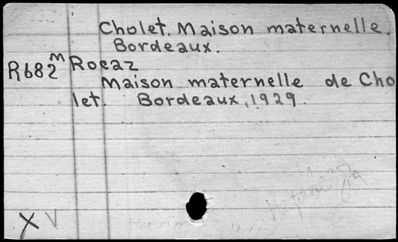 Cholet. Maison maternelle.
Bordeaux.
R682m Rocaz
Maison maternelle de Cho
let. Bordeaux, 1929.
X V